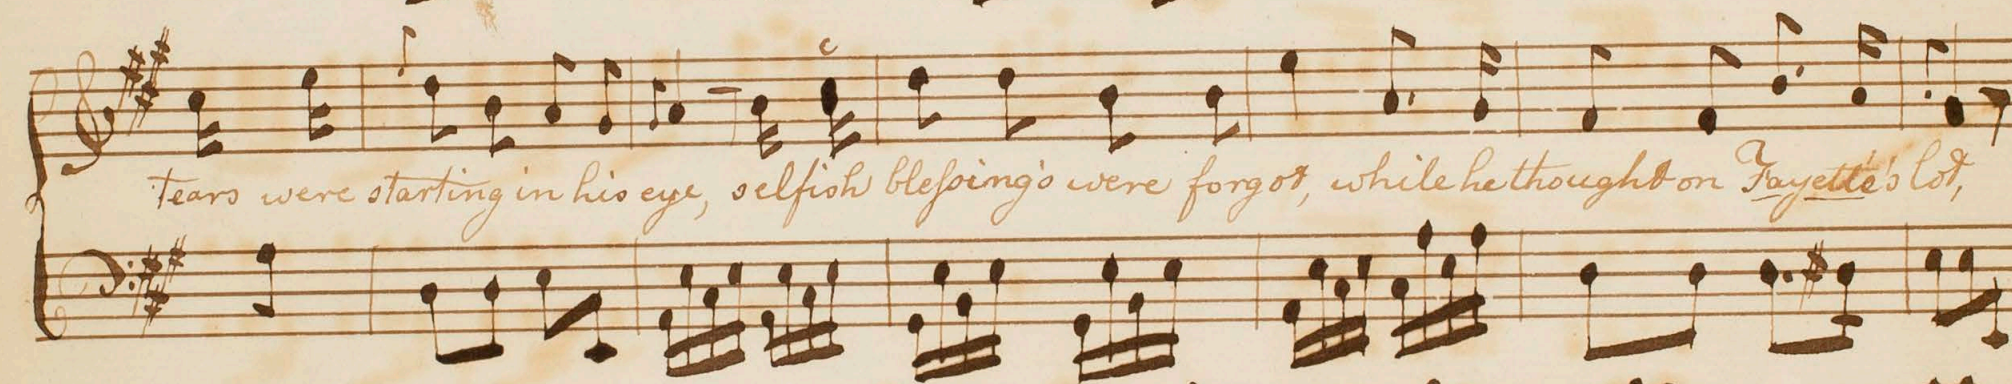 tears were starting in his eye, selfish bleſsing's were forgot, while he thought on Fayette's lot,